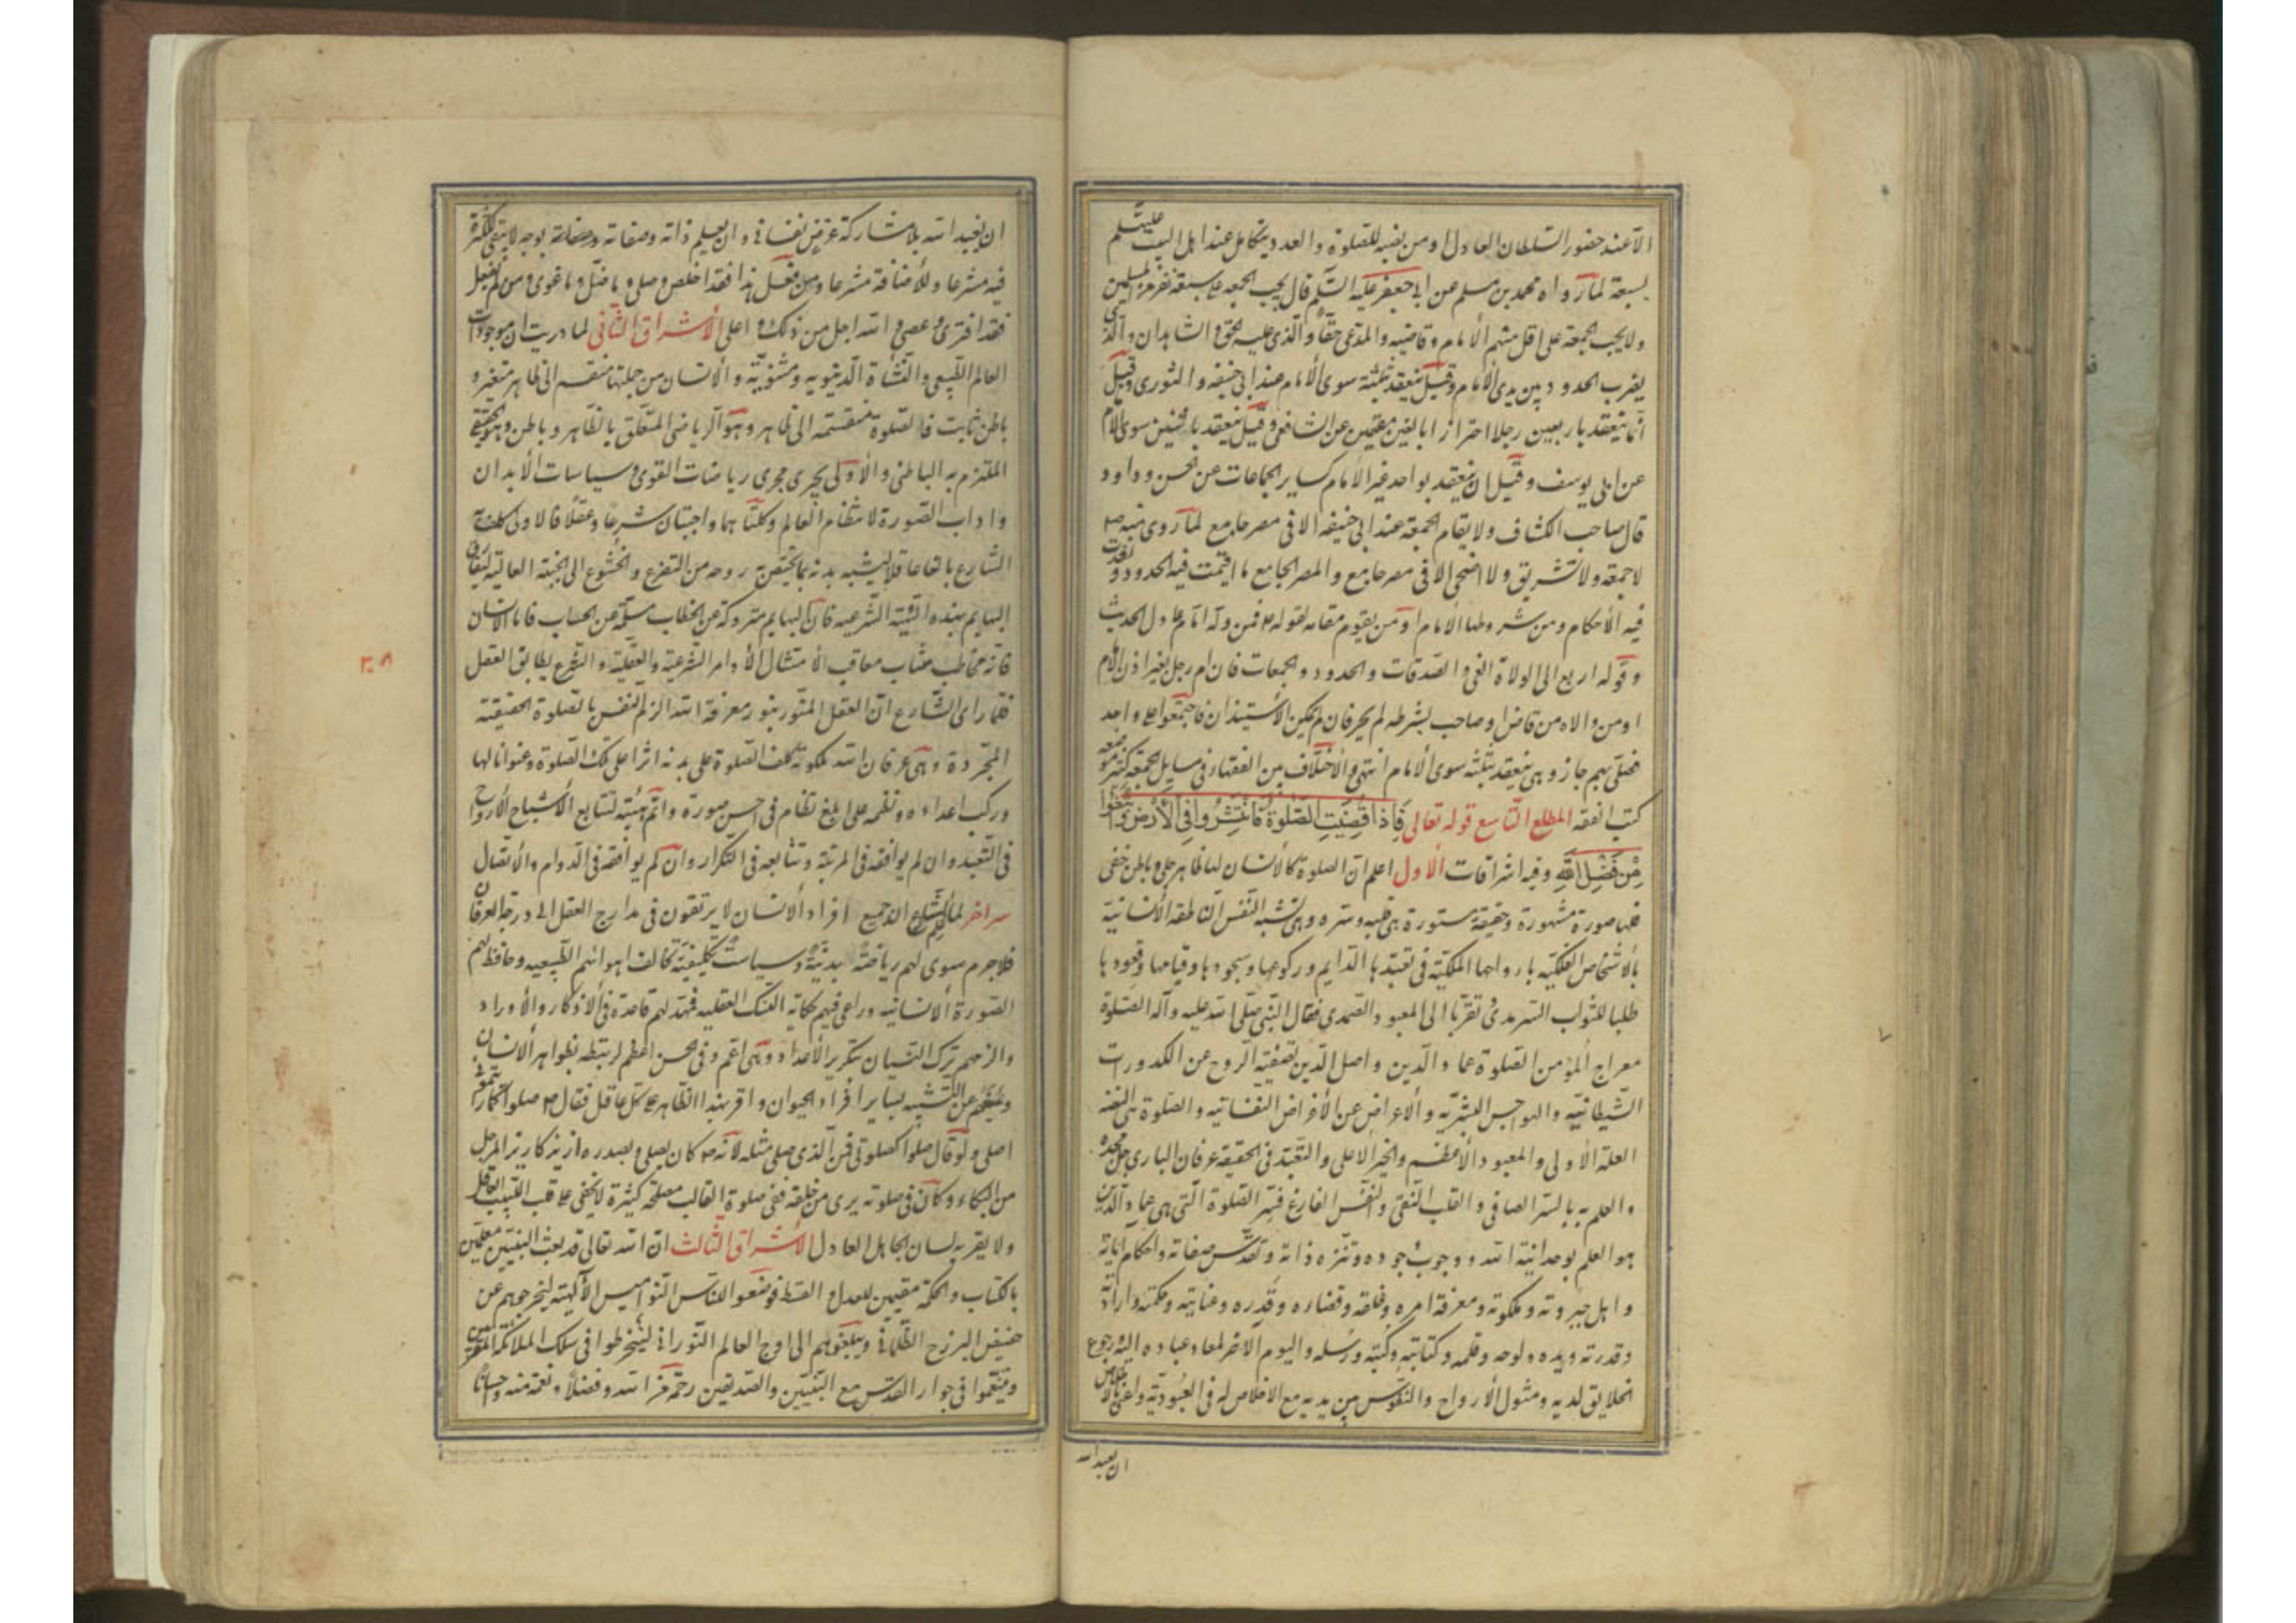 الا عند حضور السلطان العادل او من نصبه للصلوة والعدد يتكامل عند اهل البيت عليهم السلم
بسبعة لما رواه محمد بن مسلم عن ابي جعفر عليه السلم قال يجب الجمعه على سبعة نفر من المسلمين
ولا يجب الجمعة على اقل منهم الامام وقاضيه والمدعي حقا والذي عليه الحق والشاهدان والذي
يضرب الحدود بين يدي الامام وقيل ينعقد بثلثة سوى الامام عند ابي حنيفه والثوري وقيل
انما ينعقد باربعين رجلا احرارا بالغين مقيمين عن الشافعي وقيل ينعقد باثنين سوى الامام
عن ابي يوسف وقيل ان ينعقد بواحد غير الامام كساير الجماعات عن الحسن وداود
قال صاحب الكشاف ولا يقام الجمعة عند ابي حنيفه الا في مصر جامع لما روى عنه ص
لا جمعة ولا تشريق ولا اضحى الا في مصر جامع والمصر الجامع ما اقيمت فيه الحدود ونفذت
فيه الاحكام ومن شروطها الامام او من يقوم مقامه لقوله ص فمن وله امام عادل الحديث
وقوله اربع الى الولاة الفئ والصدقات والحدود والجمعات فان ام رجل بغير اذن الامام
او من ولاه من قاض او صاحب شرطه لم يجز فان لم يكن الاستيذان فاجتمعوا على واحد
فصلى بهم جاز وهي ينعقد بثلثه سوى الامام انتهى والاختلاف بين الفقهاء في مسايل الجمعة كثير موضعه
كتب الفقه المطلع التاسع قوله تعالى فاذا قضيت الصلوة فانتشروا في الارض وابتغوا
من فضل الله وفيه اشراقات الاول اعلم ان الصلوة كالانسان لها ظاهر جلي وباطن خفي
فلها صورة مشهورة وحقيقة مستورة هي قلبه وسره وهي تشبه النفس الناطقة الانسانية
بالاشخاص الفلكيه بارواحها الملكية في تعبدها الدايم وركوعها وسجودها وقيامها وقعودها
طلبا للثواب السرمدي تقربا الى المعبود الصمدي فقال النبي صلى الله عليه وآله الصلوة
معراج المؤمن الصلوة عماد الدين واصل الدين تصفية الروح عن الكدورات
الشيطانيه والهواجس البشريه والاعراض عن الاغراض النفسانيه والصلوة هي التعبد
العلة الاولى والمعبود الاعظم والخير الاعلى والتعبد في الحقيقة عرفان الباري جل مجده
والعلم به بالسر الصافي والقلب النقي والنفس الفارغ فسر الصلوة التي هي عماد الدين
هو العلم بوحدانية الله ووجوب وجوده وتنزه ذاته وتقدس صفاته واحكام اياته
واهل جبروته وملكوته ومعرفة امره وخلقه وقضاءه وقدره وعنايته وحكمته وارادته
وقدرته ويده ولوحه وقلمه وكتابته وكتبه ورسله واليوم الاخر لمعاد عباده اليه ورجوع
الخلايق لديه ومثول الارواح والنفوس بين يديه مع الاخلاص له في العبودية واعني بالاخلاص
ان يعبد الله
ان يعبد الله بلا مشاركة غرض نفساني وان يعلم ذاته وصفاته بوجه لا يبقى للكثرة
فيه مشرعا ولا للاضافة مشرعا ومن فعل هذا فقد اخلص وصلى وما ضل وما غوى ومن لم يفعل
فقد افترى وعصى والله اجل من ذلك واعلى الاشراق الثاني لما دريت ان موجودات
العالم الطبيعي والنشأة الدنيويه ومثنويته والانسان من جملتها منقسم الى ظاهر متغير و
باطن ثابت فالصلوة منقسمة الى ظاهر وهو الرياضي المتعلق بالظاهر وباطن وهو الحقيقي
الملتزم به الباطني والاولى يجري مجرى رياضات القوى وسياسات الابدان
واداب الصورة لانتظام العالم وكلتاهما واجبتان شرعا وعقلا فالاولى كلفه
الشارع بالغا عاقلا ليشبه بدنه بما يختص به روحه من التضرع والخشوع الى الجنبة العالية ليفارق
البهايم بهذه الهيئة الشرعيه فان البهايم متروكة عن الخطاب مسلمة عن الحساب فاما الانسان
فانه مخاطب مثاب معاقب لامتثال الاوامر الشرعية والعقلية والشرع يطابق العقل
فلما راى الشارع ان العقل المتنور بنور معرفة الله الزم النفس بالصلوة الحقيقية
المجردة وهي عرفان الله وملكوته كلف الصلوة على بدنه اثرا على تلك الصلوة وعنوانا لها
وركب اعداده ونظمه على ابلغ نظام في احسن صورة واتم هيئة لتتابع الاشباح الارواح
في التعبد وان لم يوافقه في المرتبة وتتابعه في التكرار وان لم يوافقه في الدوام والاتصال
سر اخر لما علم الشارع ان جميع افراد الانسان لا يرتقون في مدارج العقل الى درجة العرفان
فلا جرم سوى لهم رياضة بدنية وسياسة تكليفية تخالف اهوائهم الطبيعيه وحافظ لهم
الصورة الانسانيه وراعى فيهم حكاية النسك العقليه فمهد لهم قاعدة في الاذكار والاوراد
والزمهم ترك النسيان بتكرير الاعداد وهي اعم وفي الحس اعظم لربطه بظواهر الانسان
ويمنعهم عن التشبه بساير افراد الحيوان واقر بهذا الظاهر على كل عاقل فقال ص صلوا كما رأيتموني
اصلي ولو قال صلوا كصلوتي فمن الذي صلى مثله لانه ص كان يصلي وبصدره ازيز كازيز المرجل
من البكاء وكان في صلوته يرى من خلفه ففي صلوة القالب مصلحة كثيرة لا يخفى على قلب اللبيب العاقل
ولا يقر به لسان الجاهل العادل الاشراق الثالث ان الله تعالى قد بعث النبيين معلمين
بالكتاب والحكمة مقيمين للعدل والقسط فوضعوا للناس النواميس الالهية ليخرجوهم عن
حضيض البرزخ الظلماني ويبلغوهم الى اوج العالم النوراني لينخرطوا في سلك الملائكة المقربين
ويتنعموا في جوار القدس مع النبيين والصديقين رحمة من الله وفضلا ونعمة منه واحسانا